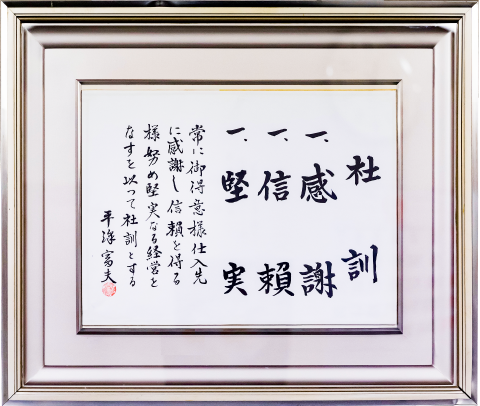 社訓
一、感謝
一、信頼
一、堅実
常に御得意様仕入先
に感謝し信頼を得る
様努め堅実なる経営を
なすを以って社訓とする